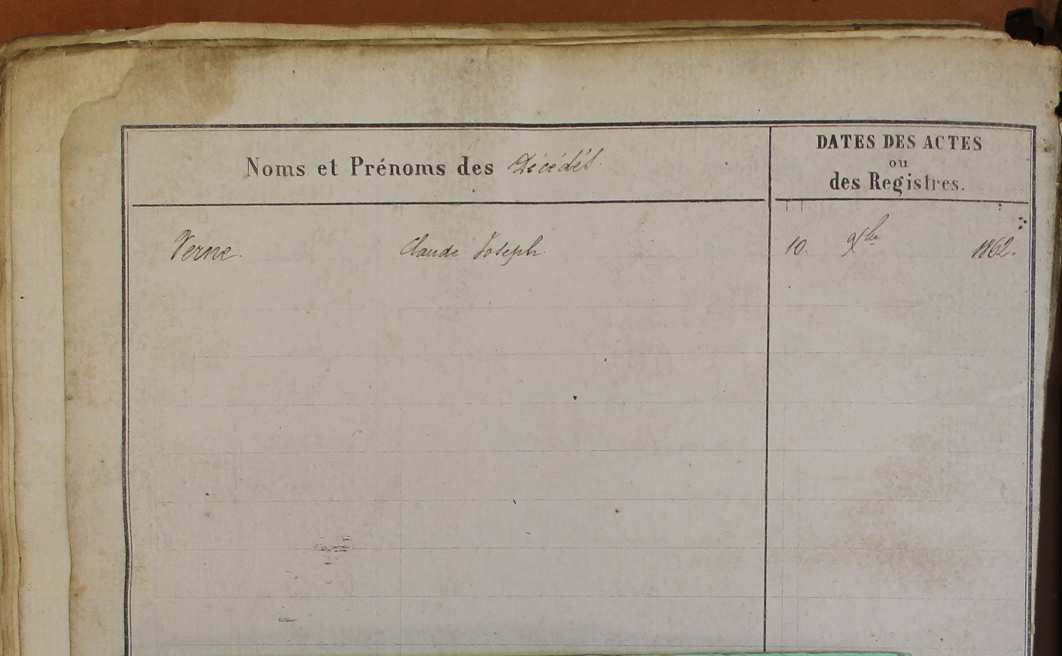 Noms et Prénoms des Décédés.
DATES DES ACTES
ou
des Registres.
Verne. Claude Joseph 10. 9bre 1862.